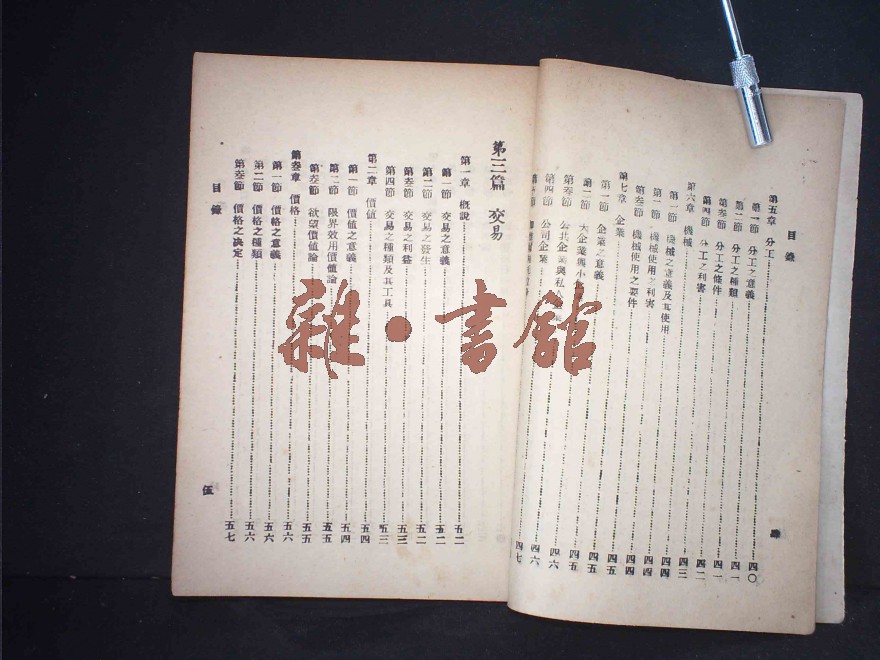 目錄
第五章 分工……四〇
第一節 分工之意義……四〇
第二節 分工之種類……四一
第叁節 分工之條件……四一
第四節 分工之利害……四二
第六章 機械……四三
第一節 機械之意義及其使用……四四
第二節 機械使用之利害……四四
第叁節 機械使用之要件……四四
第七章 企業……四五
第一節 企業之意義……四五
第二節 大企業與小
第叁節 公共企業與私
第四節 公司企業……四六
第五節
四七
肆
第三篇 交易
第一章 概說……五二
第一節 交易之意義……五二
第二節 交易之發生……五二
第叁節 交易之利益……五三
第四節 交易之種類及其工具……五三
第二章 價值……五四
第一節 價值之意義……五四
第二節 限界效用價值論……五五
第叁節 欲望價值論……五五
第叁章 價格……五六
第一節 價格之意義……五六
第二節 價格之種類……五六
第叁節 價格之決定……五七
目錄
伍
雜·書館